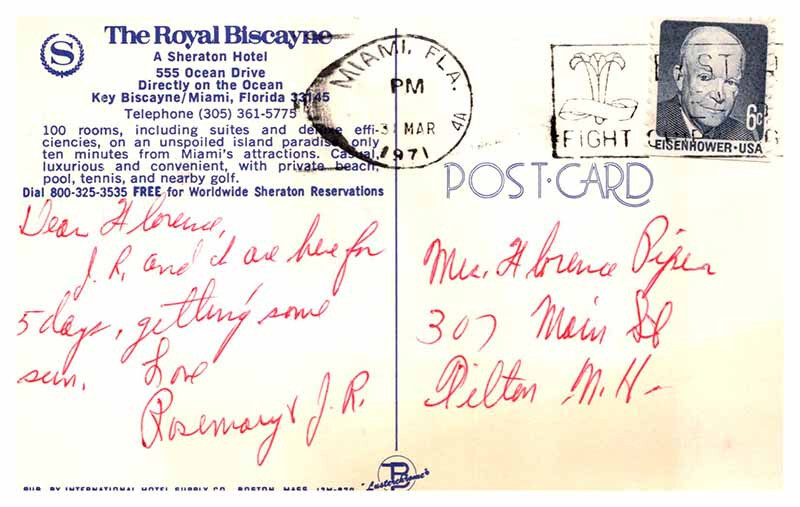 The Royal Biscayne
A Sheraton Hotel
555 Ocean Drive
Directly on the Ocean
Key Biscayne/Miami, Florida 33145
Telephone (305) 361-5775
100 rooms, including suites and deluxe effi-
ciencies, on an unspoiled island paradise only
ten minutes from Miami's attractions. Casual,
luxurious and convenient, with private beach,
pool, tennis, and nearby golf.
Dial 800-325-3535 FREE for Worldwide Sheraton Reservations
S
MIAMI, FLA.
PM
31 MAR
1971
4A
FIGHT
6c
EISENHOWER·USA
POST·CARD
Dear Florence,
J.R. and I are here for
5 days, getting some
sun. Love
Rosemary & J.R.
Mrs. Florence Piper
307 Main St
Tilton N.H.
PUB. BY INTERNATIONAL HOTEL SUPPLY CO. BOSTON, MASS.
"Lusterchrome"